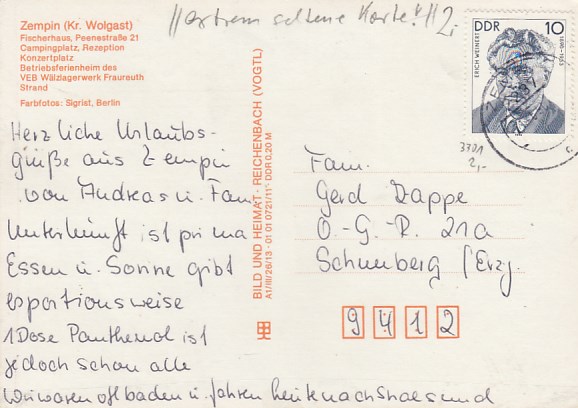 //extrem seltene Karte!// 2,-
Zempin (Kr. Wolgast)
Fischerhaus, Peenestraße 21
Campingplatz, Rezeption
Konzertplatz
Betriebsferienheim des
VEB Wälzlagerwerk Fraureuth
Strand
Farbfotos: Sigrist, Berlin
Herzliche Urlaubs-
grüße aus Zempin
von Andreas u. Fam
Unterkunft ist prima
Essen u. Sonne gibt
esportionsweise
1Dose Panthenol ist
jedoch schon alle
Wir waren oft baden u. fahren heute nach
BILD UND HEIMAT · REICHENBACH (VOGTL)
A1/III/26/13 · 01 01 0721/11 · DDR 0,20 M
DDR 10
ERICH WEINERT 1890-1953
3301
2,-
Fam.
Gerd Dappe
O.-G.-R. 21a
Schneeberg /Erzg.
9412